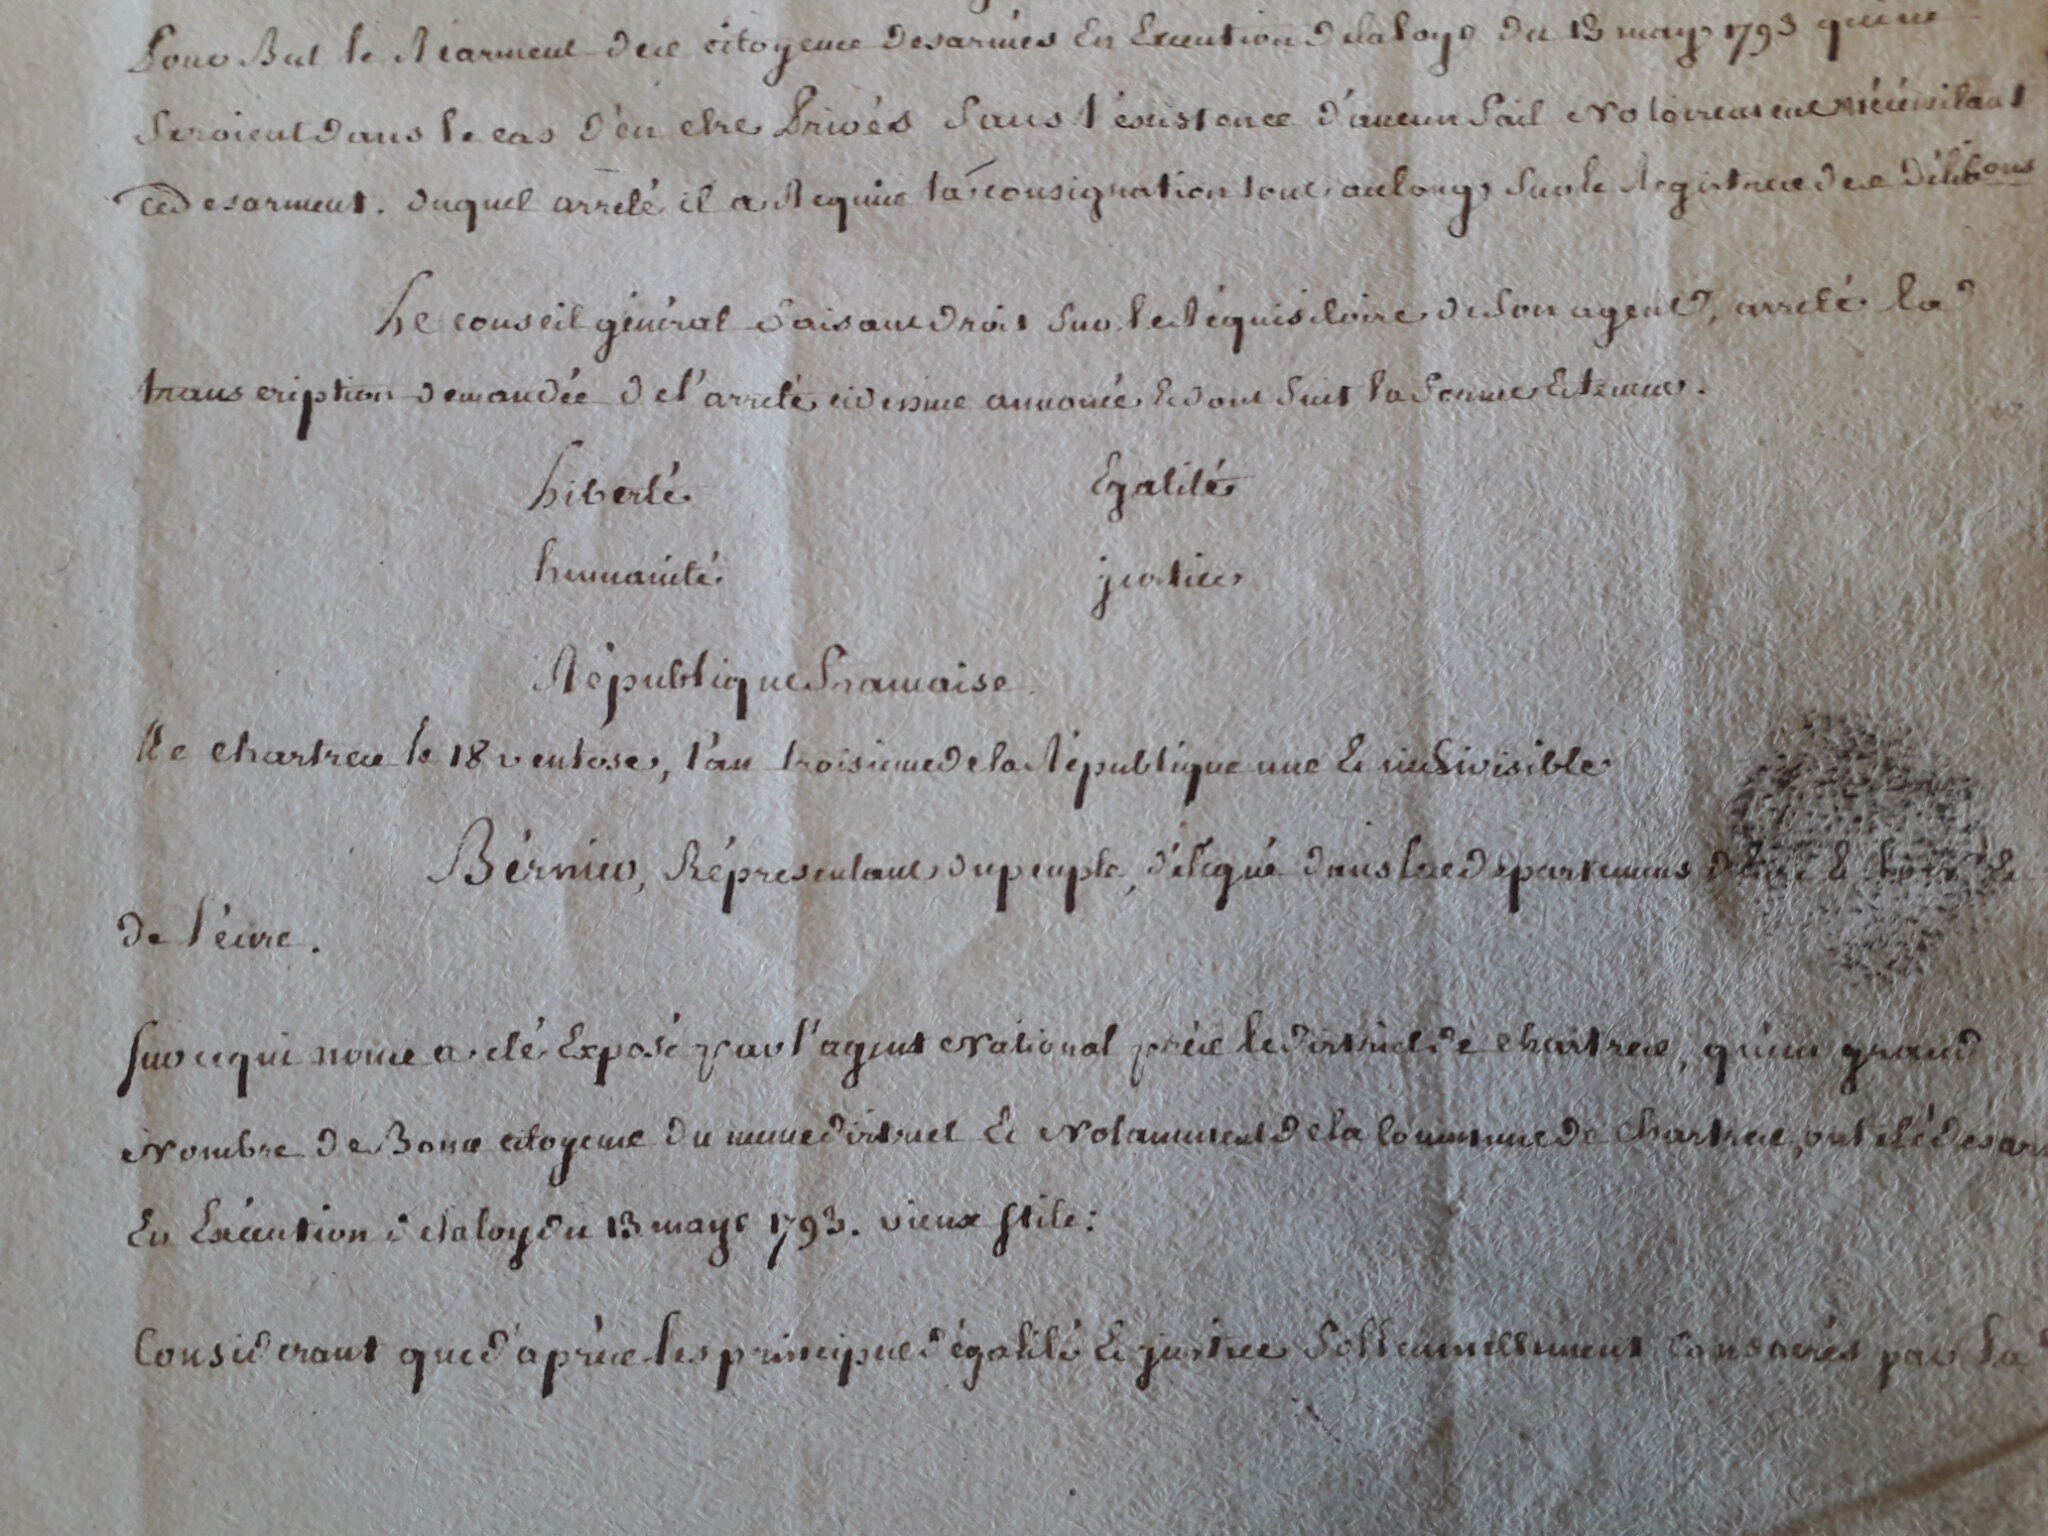 Pour But le Réarment des citoyens desarmés En Execution de la loye du 13 may 1793 qui ne
Seroient dans le cas d'en etre Privés Sans l'éxistence d'aucun fait Notoirement nécéssitant
ce desarment. duquel arrêté il a Requis la consignation tout au long Sur le Registre des Délibons
Le conseil général faisant droit Sur le Réquisitoire de Son agent, arrêté la
transcription demandée de l'arrêté cidessus annoncé & dont Suit la forme & teneur.
Liberté Egalité
humanité justice
République francaise
A Chartres le 18 ventose, l'an troisieme de la République une & indivisible
Bérnier, Réprésentant du peuple, délégué dans les departemens d'Eure & Loir &
de l'éure.
Sur ce qui nous a été Exposé par l'agent National près le district de Chartres, qu'un grand
Nombre de Bons citoyens du meme district & Notamment de la Commune de Chartres, ont été desar
En Exécution de la loy du 13 mays 1793. vieux stile:
Considerant que d'après les principes d'égalité & justice Sollennellement Consacrés par la